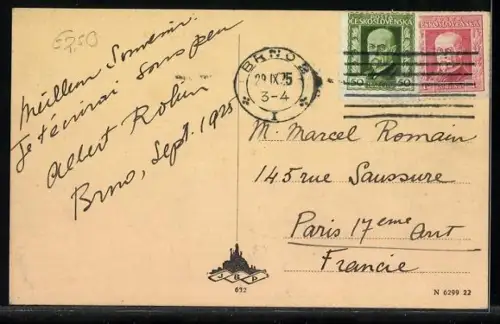 £2.50
Meilleur Souvenir.
Je t'écrirai sous peu
Albert Rohin
Brno, Sept. 1925
BRNO 2
29.IX.25
3-4
I
ČESKOSLOVENSKÁ
50 50
ČESKOSLOVENSKÁ
M. Marcel Romain
145 rue Saussure
Paris 17eme Arrt
Francie
632
N 6299 22